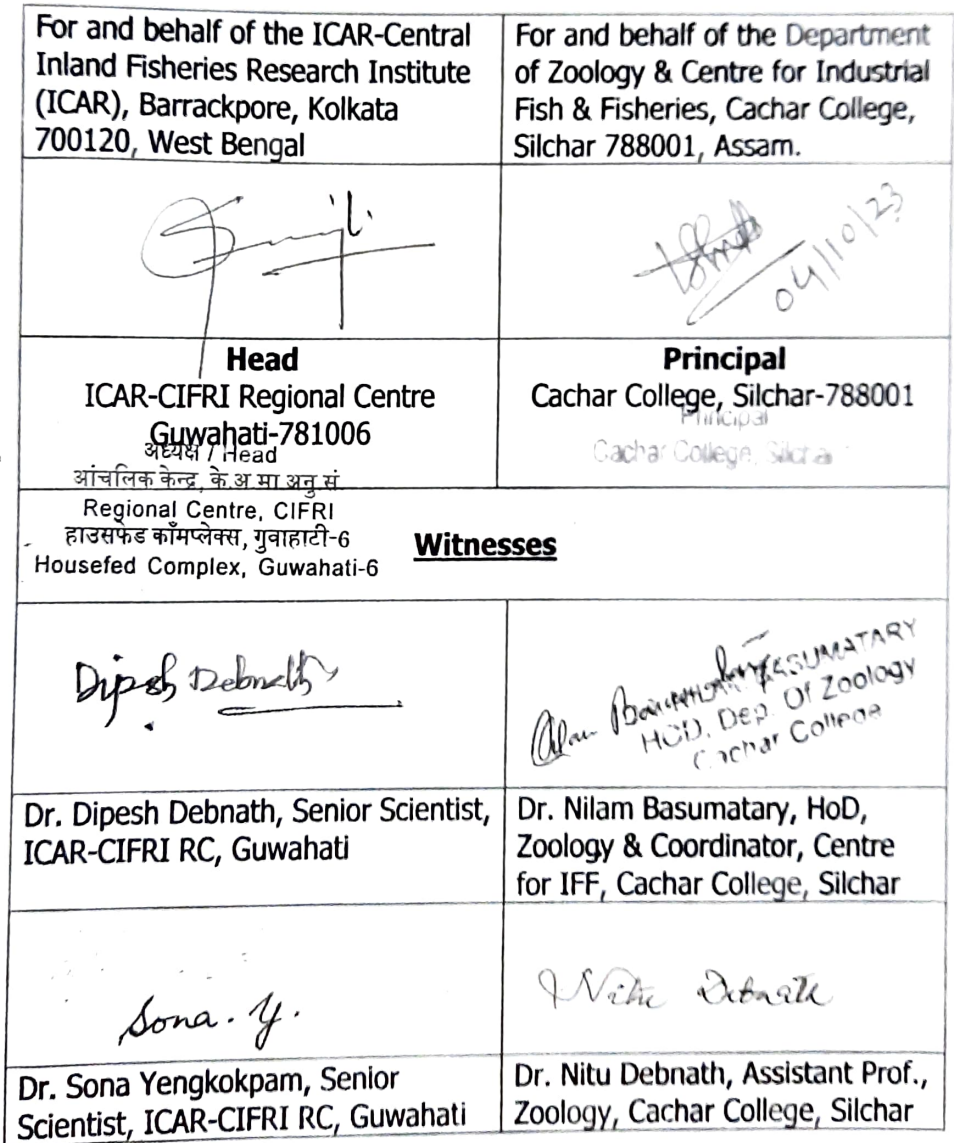 For and behalf of the ICAR-Central
Inland Fisheries Research Institute
(ICAR), Barrackpore, Kolkata
700120, West Bengal
For and behalf of the Department
of Zoology & Centre for Industrial
Fish & Fisheries, Cachar College,
Silchar 788001, Assam.
04/10/23
Head
ICAR-CIFRI Regional Centre
Guwahati-781006
अध्यक्ष / Head
आंचलिक केन्द्र, के.अ मा अनु सं
Regional Centre, CIFRI
हाउसफेड कॉमप्लेक्स, गुवाहाटी-6
Housefed Complex, Guwahati-6
Principal
Cachar College, Silchar-788001
Principal
Cachar College, Silchar
Witnesses
Dipesh Debnath
BASUMATARY
HOD, Dep. Of Zoology
Cachar College
Dr. Dipesh Debnath, Senior Scientist,
ICAR-CIFRI RC, Guwahati
Dr. Nilam Basumatary, HoD,
Zoology & Coordinator, Centre
for IFF, Cachar College, Silchar
Sona. Y.
Nitu Debnath
Dr. Sona Yengkokpam, Senior
Scientist, ICAR-CIFRI RC, Guwahati
Dr. Nitu Debnath, Assistant Prof.,
Zoology, Cachar College, Silchar